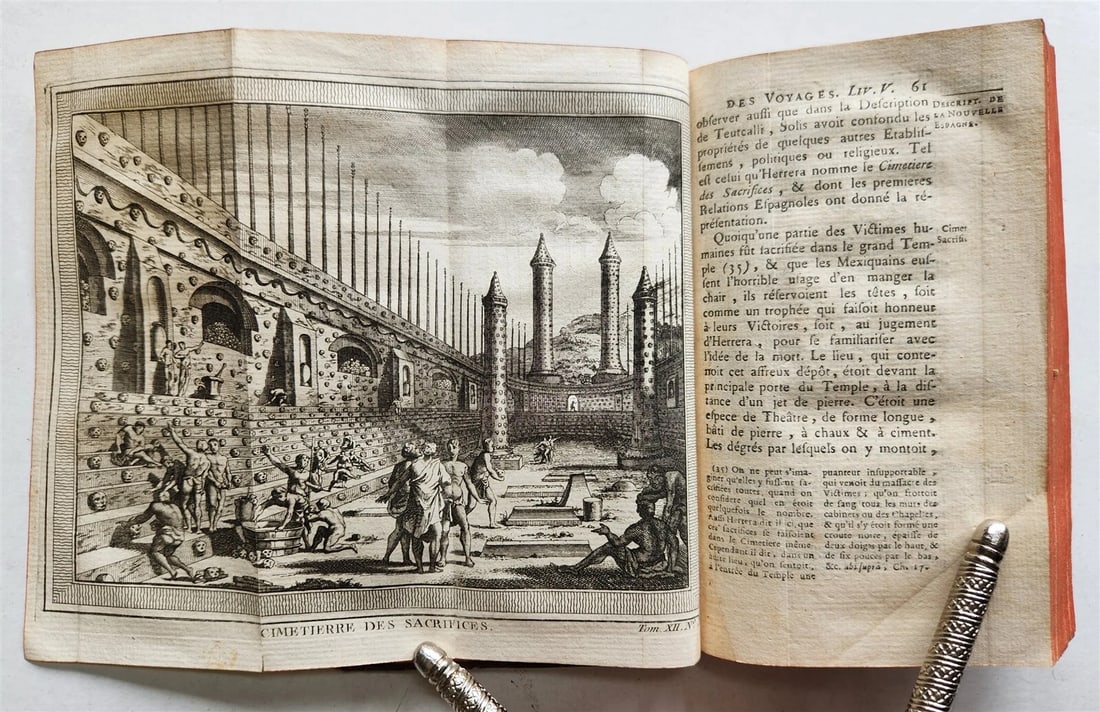 CIMETIERRE DES SACRIFICES.
Tom. XII. N°
DES VOYAGES. LIV. V. 61
obſerver auſſi que dans la Deſcription
de Teutcalli, Solis avoit confondu les
propriétés de quelques autres Etabliſ-
ſemens, politiques ou religieux. Tel
eſt celui qu'Herrera nomme le Cimetiere
des Sacrifices, & dont les premieres
Relations Eſpagnoles ont donné la ré-
préſentation.
DESCRIPT. DE
LA NOUVELLE
ESPAGNE.
Quoiqu'une partie des Victimes hu-
maines fût ſacrifiée dans le grand Tem-
ple (35), & que les Mexiquains euſ-
ſent l'horrible uſage d'en manger la
chair, ils réſervoient les têtes, ſoit
comme un trophée qui faiſoit honneur
à leurs Victoires, ſoit, au jugement
d'Herrera, pour ſe familiariſer avec
l'idée de la mort. Le lieu, qui conte-
noit cet affreux dépôt, étoit devant la
principale porte du Temple, à la diſ-
tance d'un jet de pierre. C'étoit une
eſpece de Theâtre, de forme longue,
bâti de pierre, à chaux & à ciment.
Les dégrés par leſquels on y montoit,
Cimet
Sacrifi.
(35) On ne peut s'ima-
giner qu'elles y fuſſent ſa-
crifiées toutes, quand on
conſidere quel en étoit
quelquefois le nombre.
Auſſi Herrera dit il ici, que
ces ſacrifices ſe faiſoient
dans le Cimetiere même.
Cependant il dit, dans un
autre lieu, qu'on ſentoit,
à l'entrée du Temple une
puanteur inſupportable,
qui venoit du maſſacre des
Victimes; qu'on frottoit
de ſang tous les murs des
cabinets ou des Chapelles,
& qu'il s'y étoit formé une
croute noire, épaiſſe de
deux doigts par le haut, &
de ſix pouces par le bas,
&c. ubi ſuprà, Ch. 17.